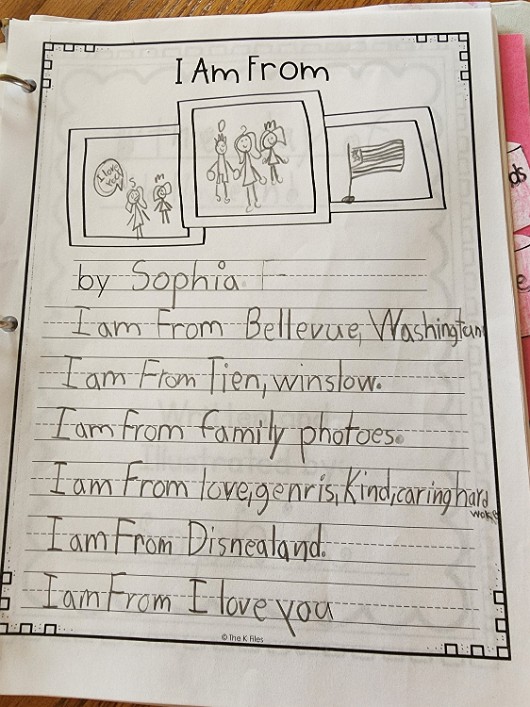 I Am From
I love you!
by Sophia F
I am From Bellevue, Washingtun
I am From Tien, winslow.
I am From family photoes.
I am From love, genris, Kind, caring hard
woke
I am From Disnealand.
I am From I love you
© The K Files